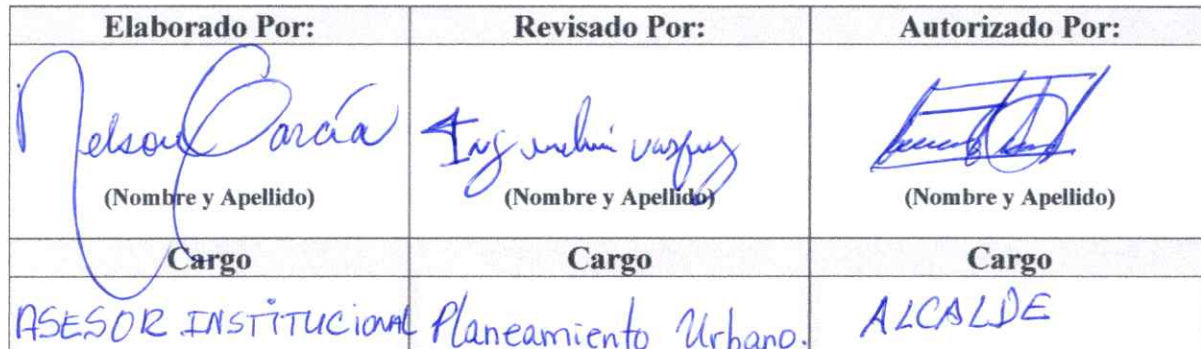 Elaborado Por: Revisado Por: Autorizado Por:
Nelson García Ing vasquez
(Nombre y Apellido) (Nombre y Apellido) (Nombre y Apellido)
Cargo Cargo Cargo
ASESOR INSTITUCIONAL Planeamiento Urbano. ALCALDE